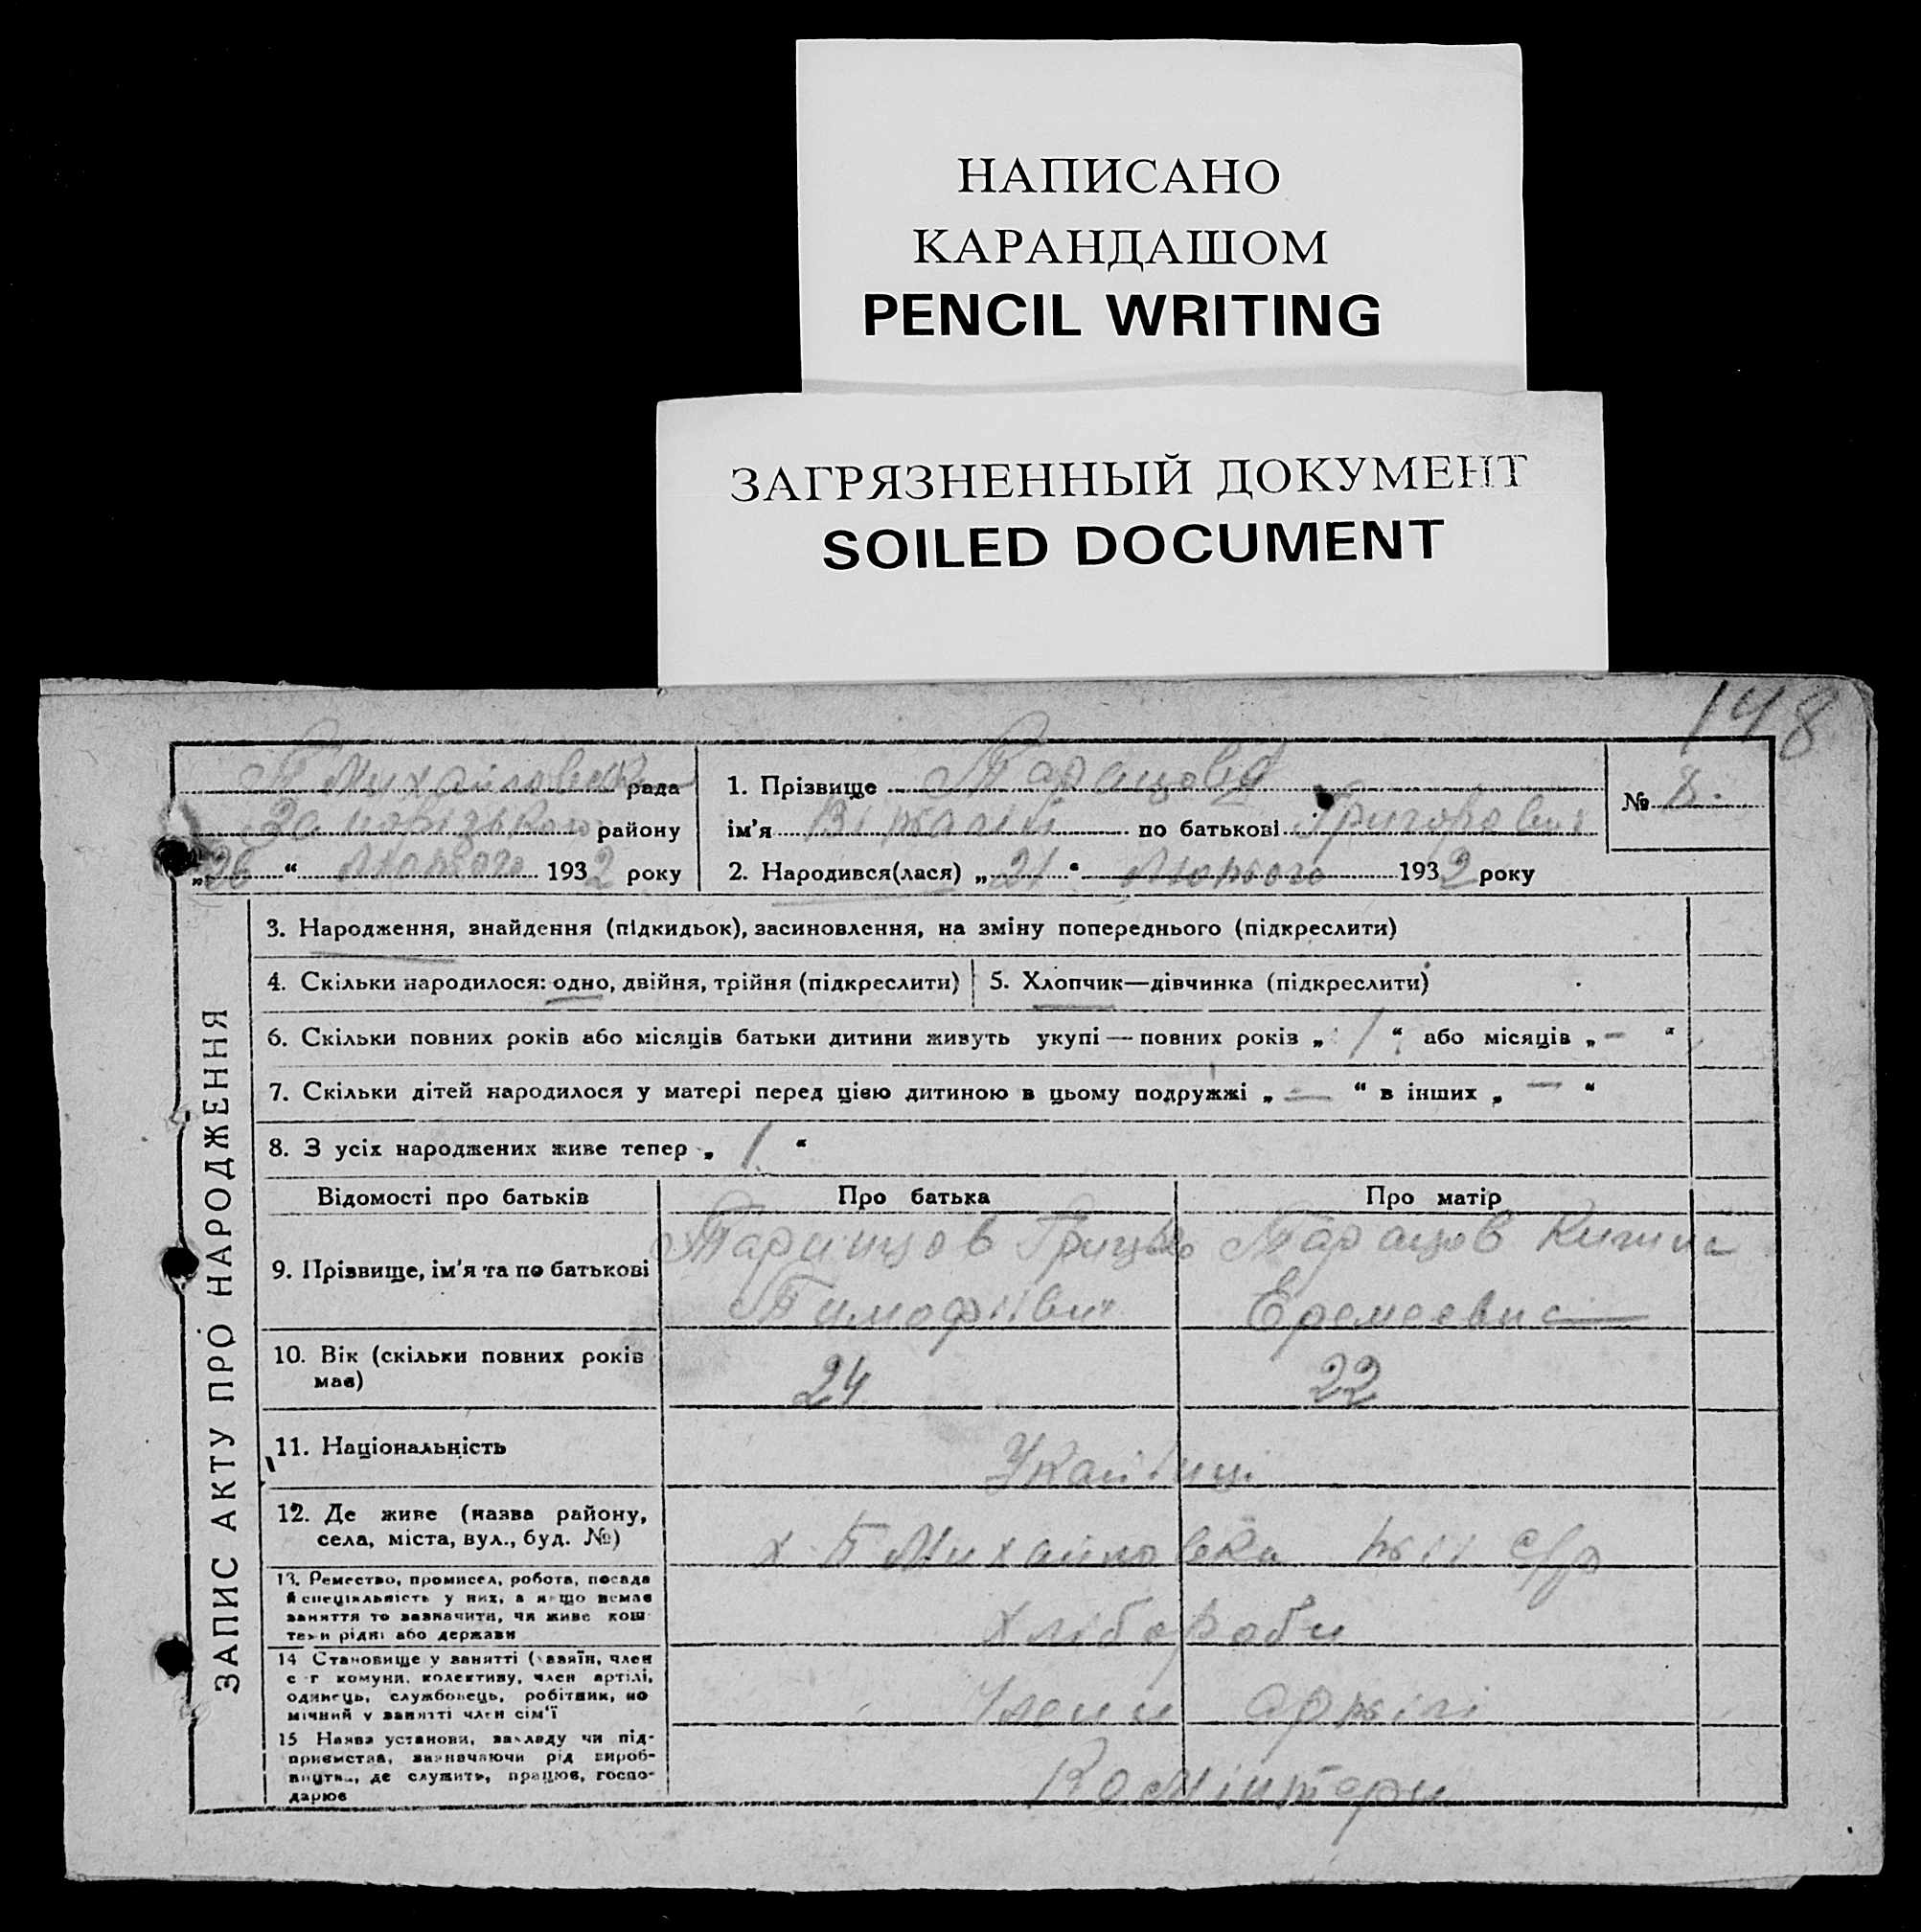 НАПИСАНО
КАРАНДАШОМ
PENCIL WRITING
ЗАГРЯЗНЕННЫЙ ДОКУМЕНТ
SOILED DOCUMENT
148
рада
району
„26“ Лютого 1932 року
1. Прізвище
ім’я Віталій по батькові Григорович
2. Народився(лася) „21“ Лютого 1932 року
№ 8.
ЗАПИС АКТУ ПРО НАРОДЖЕННЯ
3. Народження, знайдення (підкидьок), засиновлення, на зміну попереднього (підкреслити)
4. Скільки народилося: одно, двійня, трійня (підкреслити)
5. Хлопчик—дівчинка (підкреслити)
6. Скільки повних років або місяців батьки дитини живуть укупі — повних років „1“ або місяців „–“
7. Скільки дітей народилося у матері перед цією дитиною в цьому подружжі „—“ в інших „—“
8. З усіх народжених живе тепер „1“
Відомості про батьків
Про батька
Про матір
9. Прізвище, ім’я та по батькові
Грицько
Тимофіївич
Таранцов
10. Вік (скільки повних років
має)
24
22
11. Національність
12. Де живе (назва району,
села, міста, вул., буд. №)
х Михайловка с/р
13. Ремество, промисел, робота, посада
й спеціяльність у них, а якщо немає
заняття то зазначити, чи живе кош-
тами рідні або держави
Хлібороби
14 Становище у занятті (хазяїн, член
с-г комуни, колективу, член артілі,
одинець, службовець, робітник, по
мічний у занятті член сім’ї
Члени артілі
15 Назва установи, закладу чи під-
приємства, зазначаючи рід вироб-
ництва, де служить, працює, госпо-
дарює
Комінтерн